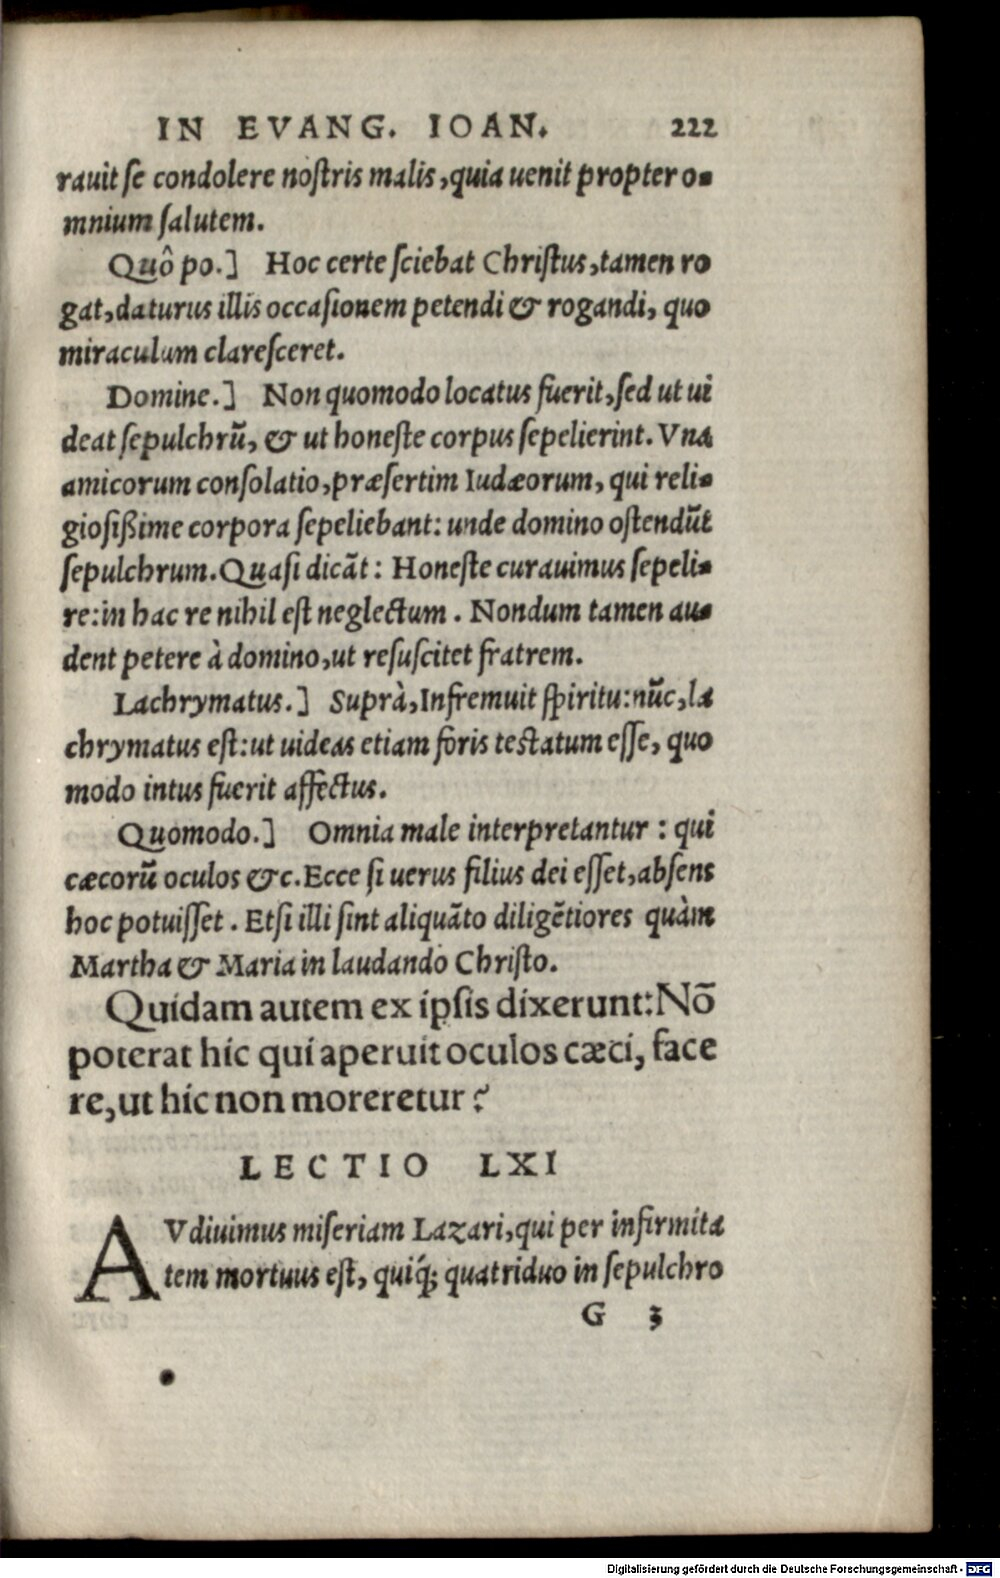 IN EVANG. IOAN. 222
rauit se condolere nostris malis, quia uenit propter o-
mnium salutem.
Quô po.] Hoc certe sciebat Christus, tamen ro
gat, daturus illis occasionem petendi & rogandi, quo
miraculum claresceret.
Domine.] Non quomodo locatus fuerit, sed ut ui
deat sepulchrũ, & ut honeste corpus sepelierint. Vna
amicorum consolatio, præsertim Iudæorum, qui reli-
giosißime corpora sepeliebant: unde domino ostendũt
sepulchrum. Quasi dicãt: Honeste curauimus sepeli-
re: in hac re nihil est neglectum. Nondum tamen au-
dent petere à domino, ut resuscitet fratrem.
Lachrymatus.] Suprà, Infremuit spiritu: nũc, la
chrymatus est: ut uideas etiam foris testatum esse, quo
modo intus fuerit affectus.
Quomodo.] Omnia male interpretantur: qui
cæcorũ oculos &c. Ecce si uerus filius dei esset, absens
hoc potuisset. Etsi illi sint aliquãto diligẽtiores quàm
Martha & Maria in laudando Christo.
Quidam autem ex ipsis dixerunt: Nõ
poterat hic qui aperuit oculos cæci, face
re, ut hic non moreretur?
LECTIO LXI
AVdiuimus miseriam Lazari, qui per infirmita
tem mortuus est, quiq́; quatriduo in sepulchro
G 3
Digitalisierung gefördert durch die Deutsche Forschungsgemeinschaft - DFG